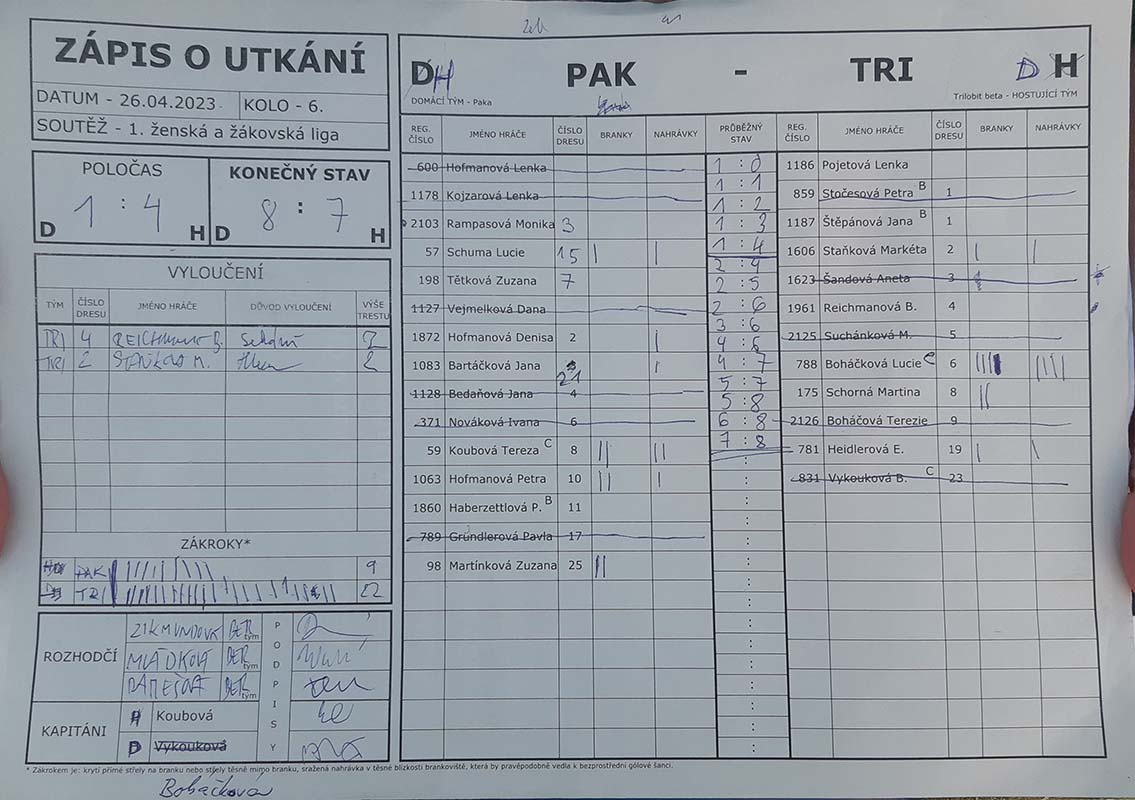 ZÁPIS O UTKÁNÍ
DATUM - 26.04.2023 KOLO - 6.
SOUTĚŽ - 1. ženská a žákovská liga
POLOČAS
1 : 4
D H
KONEČNÝ STAV
8 : 7
D H
VYLOUČENÍ
TÝM ČÍSLO DRESU JMÉNO HRÁČE DŮVOD VYLOUČENÍ VÝŠE TRESTU
TRI 4 REICHMANOVÁ B. Sekání 2
TRI 2 STAŇKOVÁ M. 2
ZÁKROKY*
PAK 9
TRI 22
ROZHODČÍ
ZIKMUNDOVÁ BER tým
MLÁDKOVÁ BER tým
BER tým
PODPISY
KAPITÁNI
Koubová
D Vykouková
* Zákrokem je: krytí přímé střely na branku nebo střely těsně mimo branku, sražená nahrávka v těsné blízkosti brankoviště, která by pravěpodobně vedla k bezprostřední gólové šanci.
Boháčková
D H PAK - TRI D H
DOMÁCÍ TÝM - Paka
Trilobit beta - HOSTUJÍCÍ TÝM
REG. ČÍSLO JMÉNO HRÁČE ČÍSLO DRESU BRANKY NAHRÁVKY
600 Hofmanová Lenka
1178 Kojzarová Lenka
2103 Rampasová Monika 3
57 Schuma Lucie 15 | |
198 Tětková Zuzana 7
1127 Vejmelková Dana
1872 Hofmanová Denisa 2 |
1083 Bartáčková Jana 21 |
1128 Bedaňová Jana 4
371 Nováková Ivana 6
59 Koubová Tereza C 8 || ||
1063 Hofmanová Petra 10 || |
1860 Haberzettlová P. B 11
789 Gründlerová Pavla 17
98 Martínková Zuzana 25 ||
PRŮBĚŽNÝ STAV
1 : 0
1 : 1
1 : 2
1 : 3
1 : 4
2 : 4
2 : 5
2 : 6
3 : 6
4 : 6
4 : 7
5 : 7
5 : 8
6 : 8
7 : 8
REG. ČÍSLO JMÉNO HRÁČE ČÍSLO DRESU BRANKY NAHRÁVKY
1186 Pojetová Lenka
859 Stočesová Petra B 1
1187 Štěpánová Jana B 1
1606 Staňková Markéta 2 | |
1623 Šandová Aneta 3
1961 Reichmanová B. 4
2125 Suchánková M. 5
788 Boháčková Lucie C 6 |||| ||||
175 Schorná Martina 8 ||
2126 Boháčová Terezie 9
781 Heidlerová E. 19 | |
831 Vykouková B. C 23